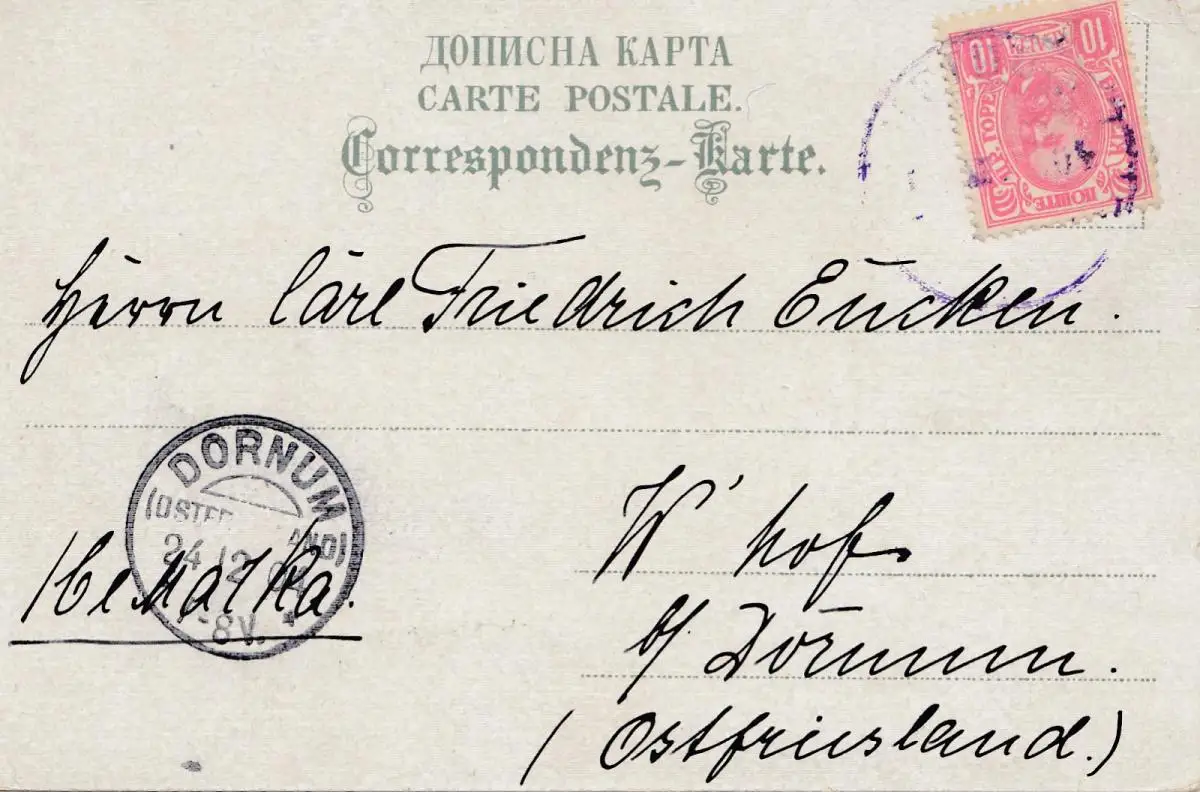 ДОПИСНА КАРТА
CARTE POSTALE.
Correspondenz-Karte.
10 10
ПОШТЕ ЦР. ГОРЕ
Herrn Carl Friedrich Eucken.
DORNUM
(OSTFR AND)
24 12
-8V.
Немачка.
W'hof
b/ Dornum.
(Ostfriesland.)